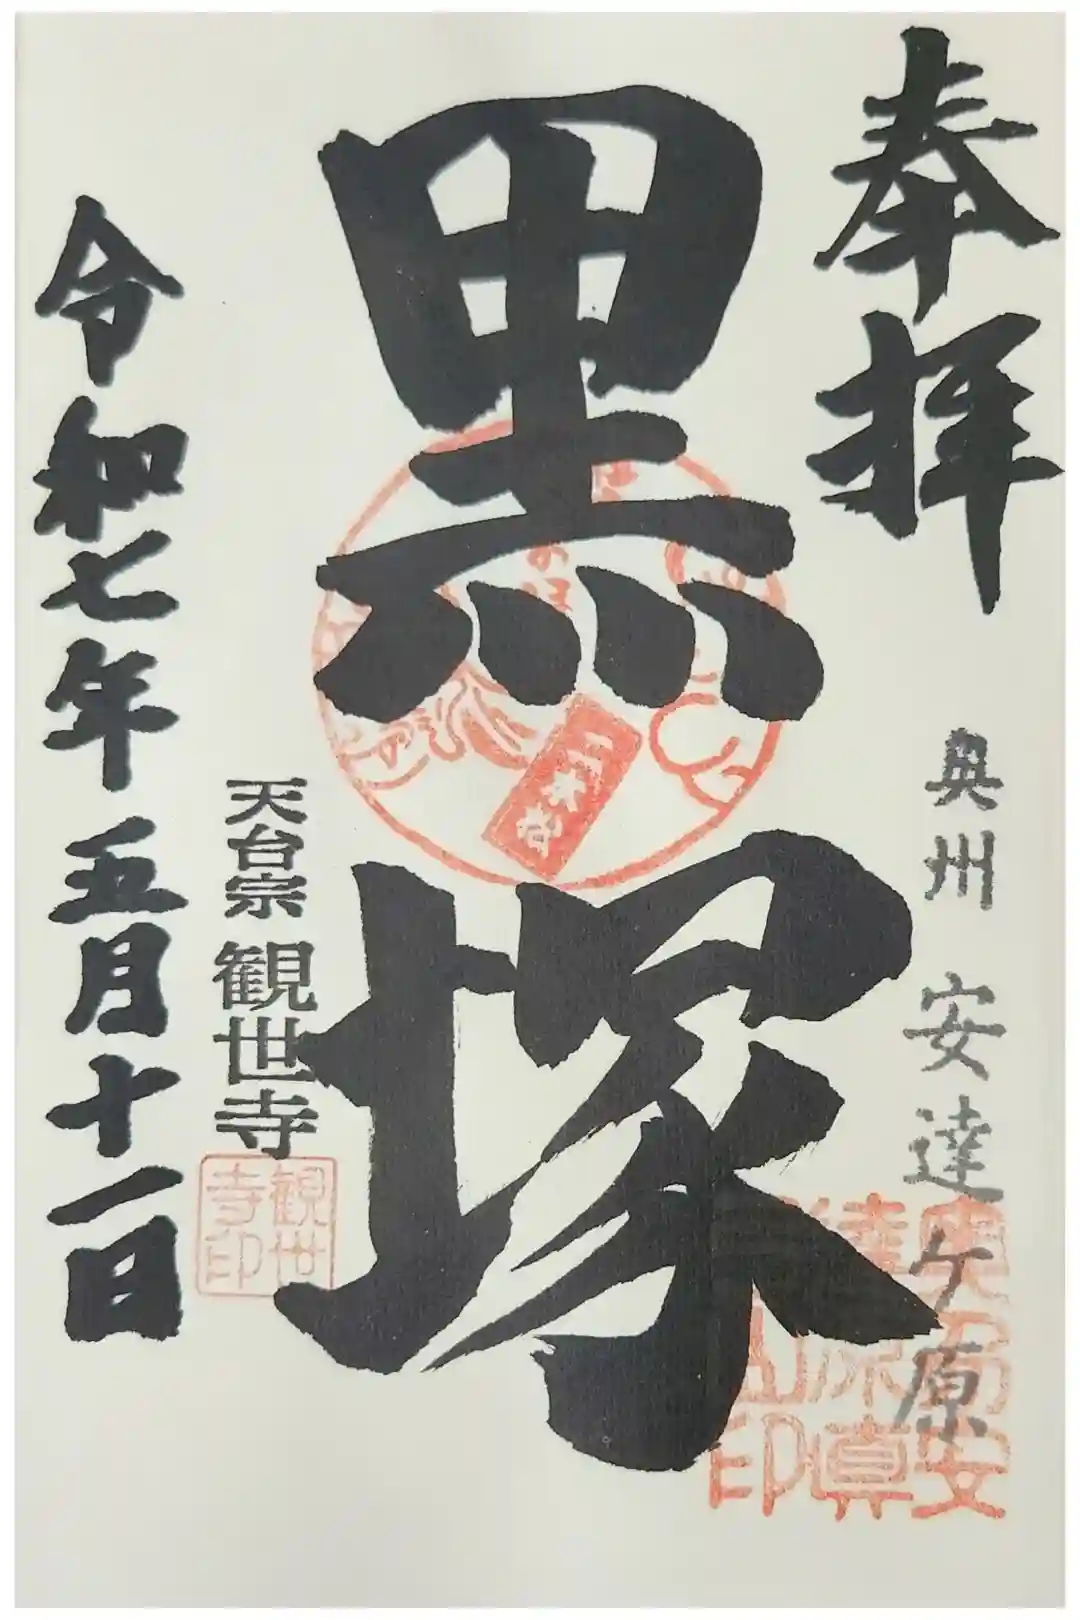 奉拝
奥州 安達ケ原
黒塚
天台宗 観世寺
観世寺印
令和七年五月十一日